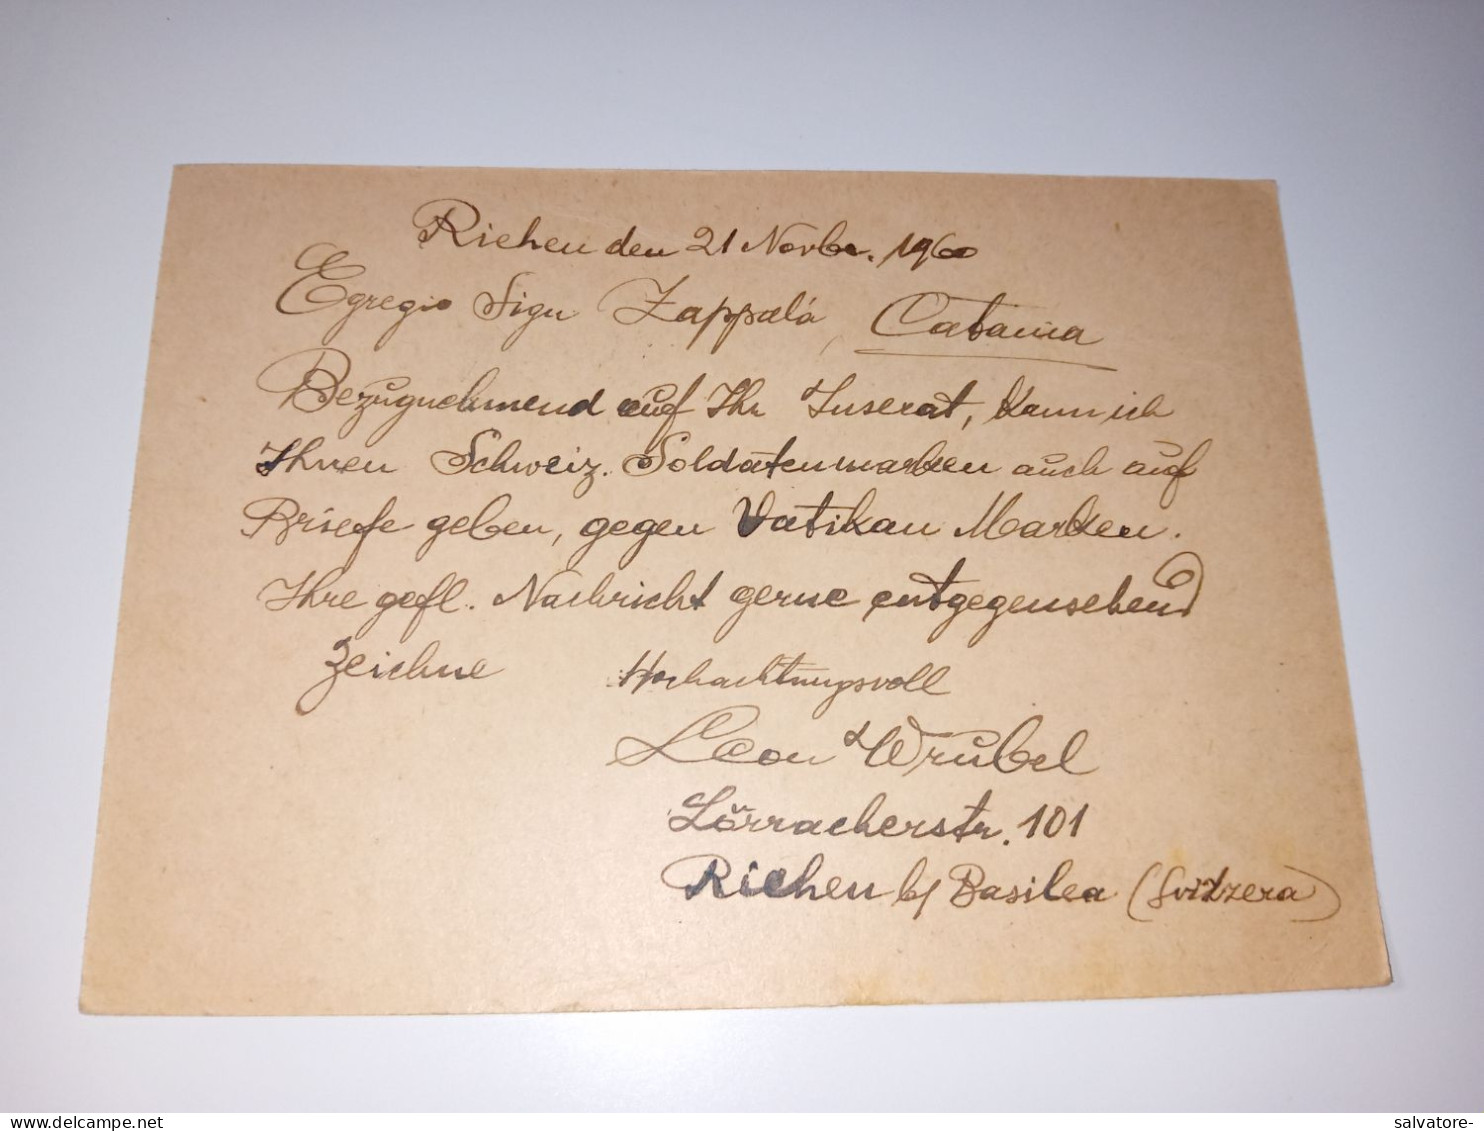 Riehen den 21 Novbr. 1960
Egregio Sign Zappalá, Catania
Bezugnehmend auf Ihr Inserat, kann ich
Ihnen Schweiz. Soldatenmarken auch auf
Briefe geben, gegen Vatikan Marken.
Ihre gefl. Nachricht gerne entgegensehend
zeichne Hochachtungsvoll
Leon Wrubel
Lörracherstr. 101
Riehen b/ Basilea (Svizzera)
salvatore-